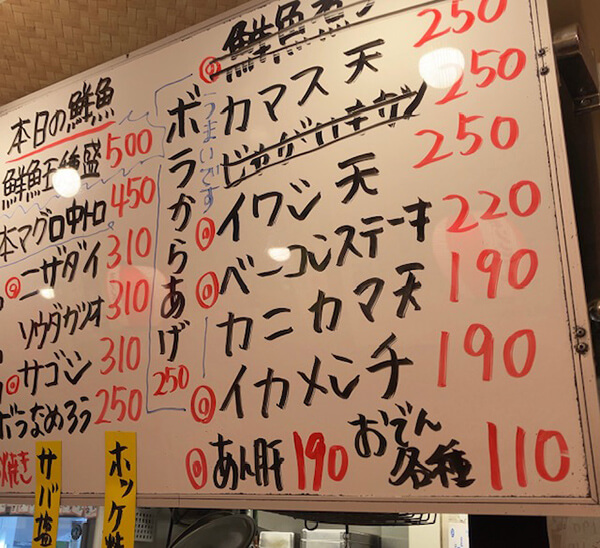 本日の鮮魚
鮮魚五種盛 500
本マグロ中トロ 450
ニザダイ 310
ソウダガツオ 310
サゴシ 310
ボラなめろう 250
焼き
サバ塩
ホッケ
ボラからあげ 250
うまいです
鮮魚
カマス天 250
250
イワシ天 250
ベーコンステーキ 220
カニカマ天 190
イカメンチ 190
あん肝 190
おでん各種 110